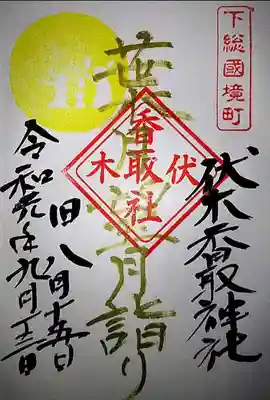 下総國境町
伏木香取神社
伏木
香取社
葉月
月詣り
旧八月十五日
令和元年九月十三日